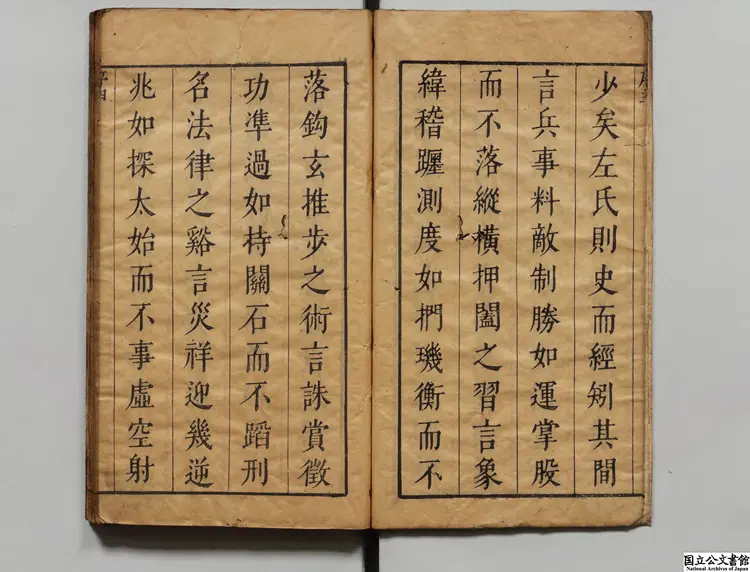 少矣左氏則史而經矧其間
言兵事料敵制勝如運掌股
而不落縱橫押闔之習言象
緯稽躔測度如捫璣衡而不
落鈎玄推步之術言誅賞徵
功凖過如持關石而不蹈刑
名法律之谿言災祥迎幾逆
兆如探太始而不事虛空射
序四
国立公文書館
National Archives of Japan